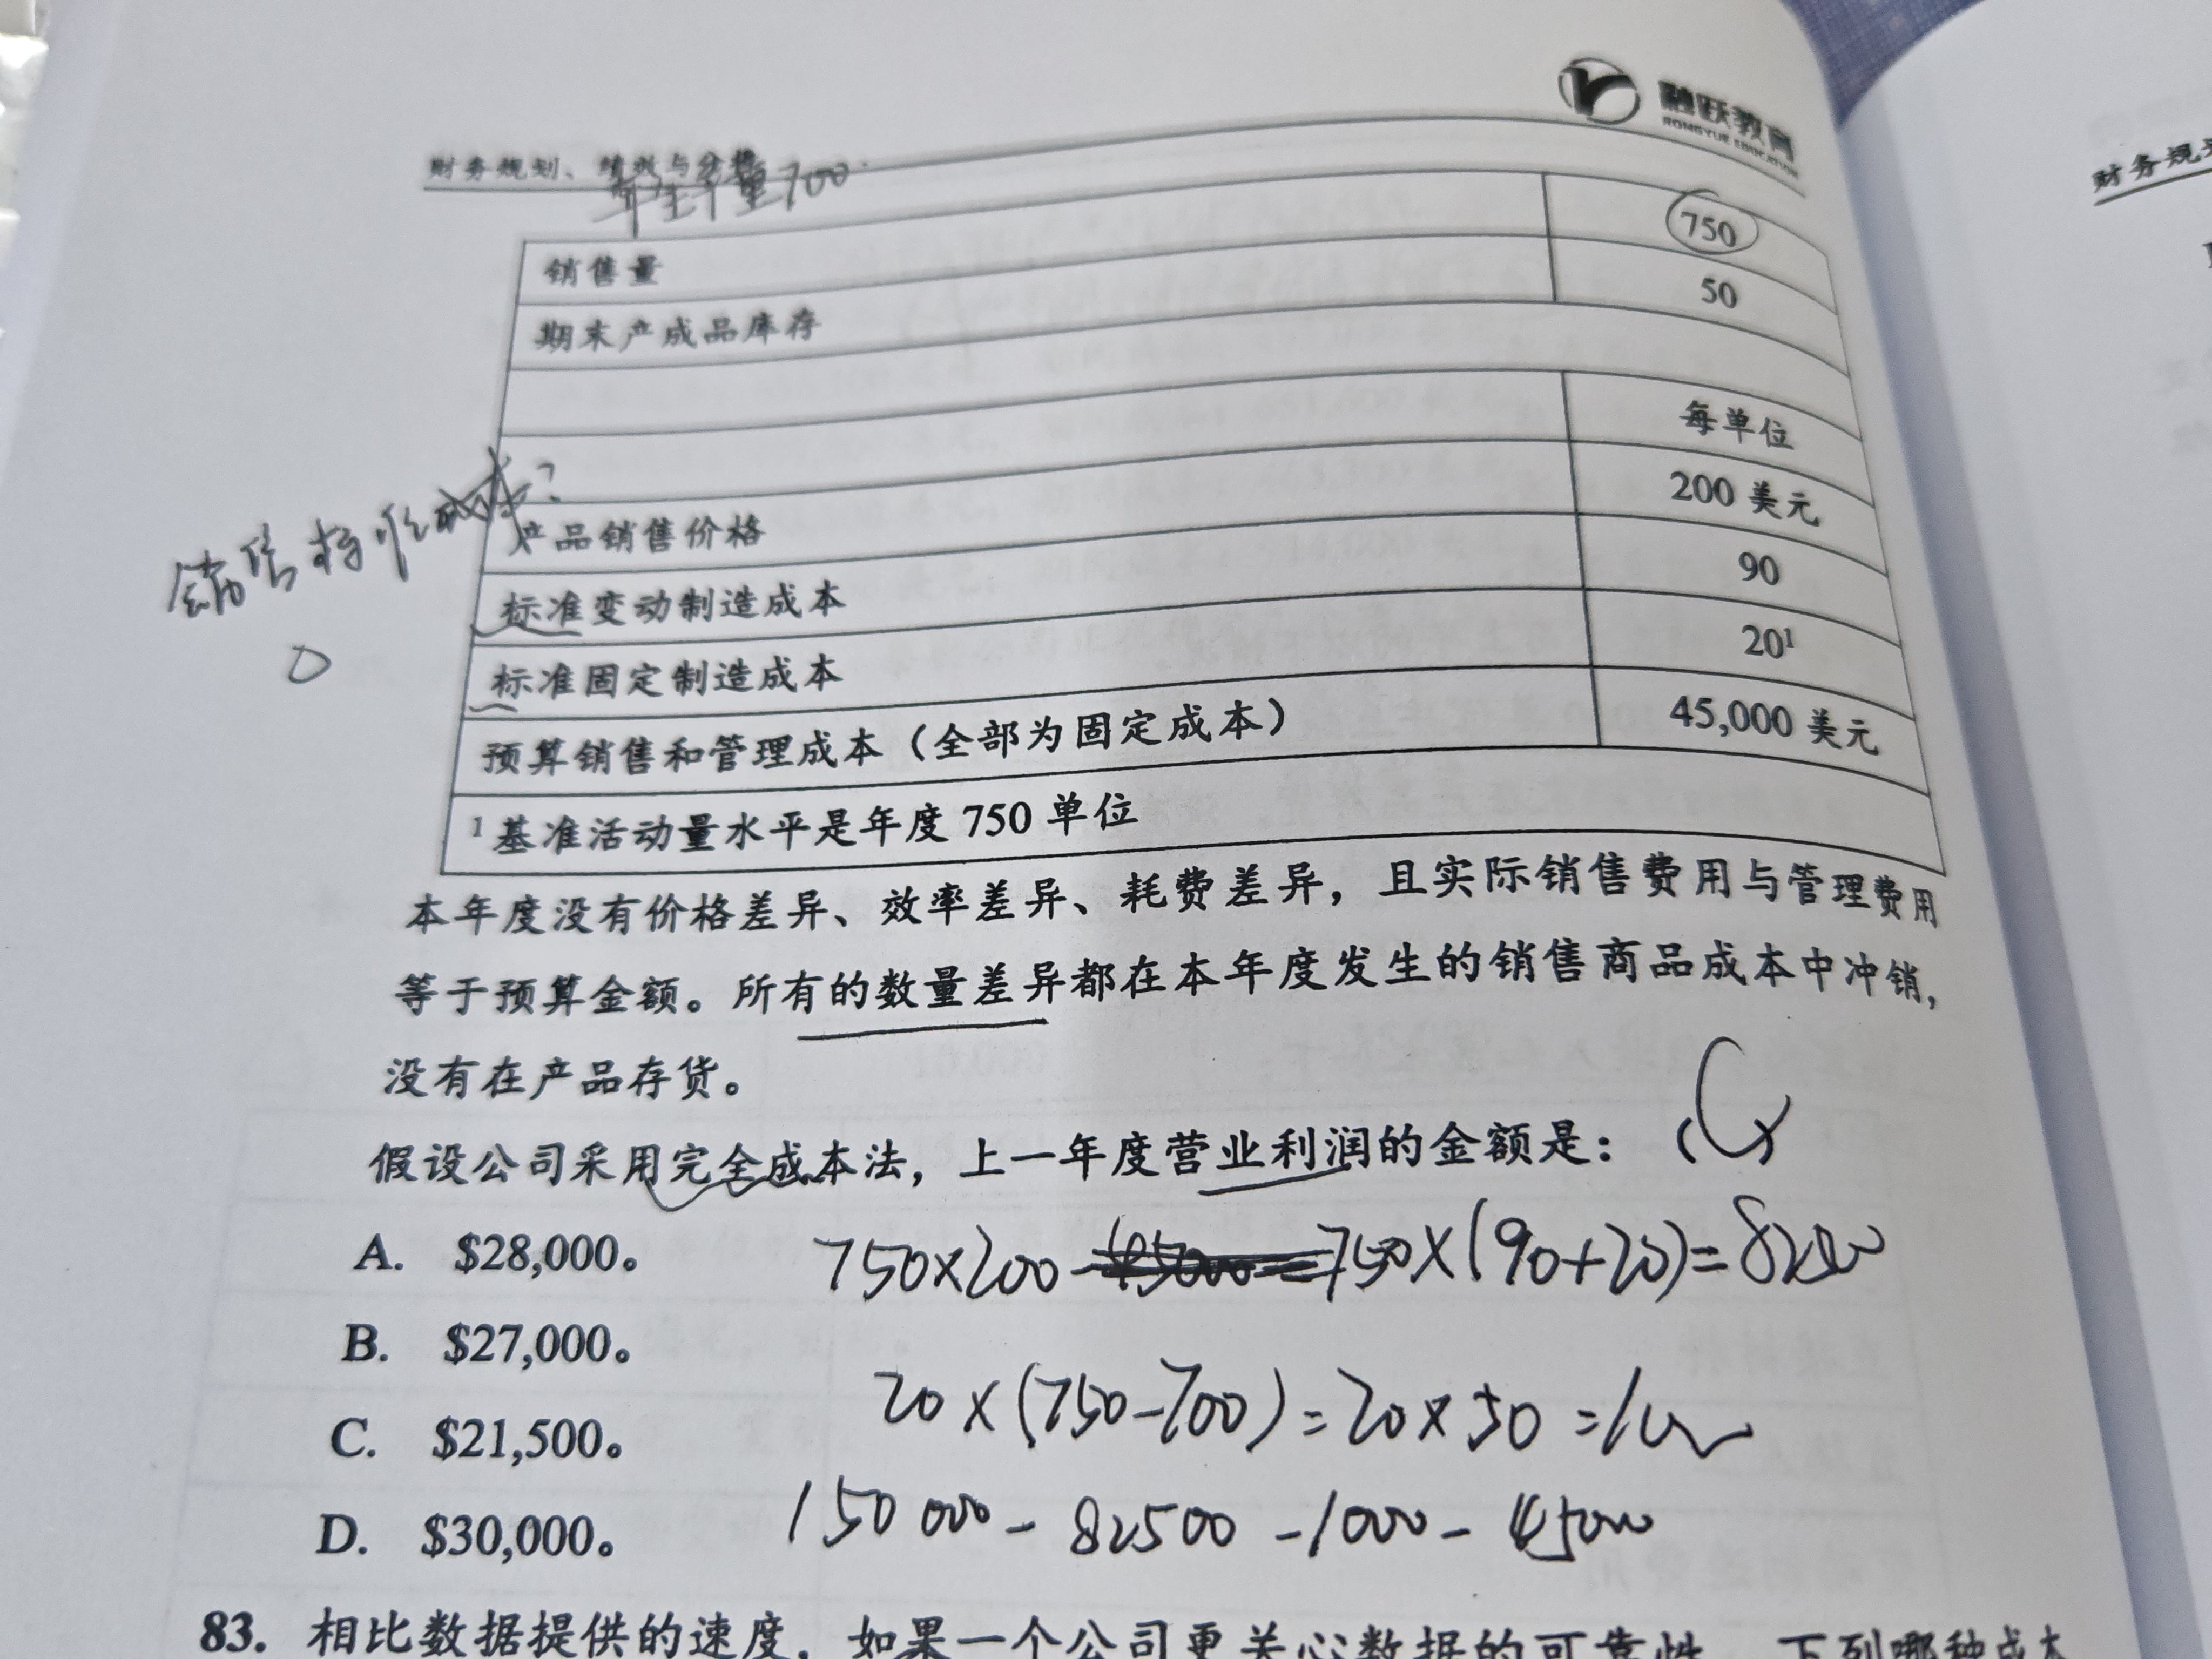 融跃教育
RONGYUE EDUCATION
财务规划、绩效与分析
年生产量700
销售量 750
期末产成品库存 50
每单位
产品销售价格 200 美元
标准变动制造成本 90
标准固定制造成本 20¹
预算销售和管理成本（全部为固定成本） 45,000 美元
¹ 基准活动量水平是年度 750 单位
销售标准成本?
0
本年度没有价格差异、效率差异、耗费差异，且实际销售费用与管理费用
等于预算金额。所有的数量差异都在本年度发生的销售商品成本中冲销，
没有在产品存货。
假设公司采用完全成本法，上一年度营业利润的金额是： C
A. $28,000。
750×200 - 750×(90+20)=82500
B. $27,000。
20×(750-700)=20×50=1000
C. $21,500。
150000-82500-1000-45000
D. $30,000。
83. 相比数据提供的速度，如果一个公司更关心数据的可靠性，下列哪种成本
财务规